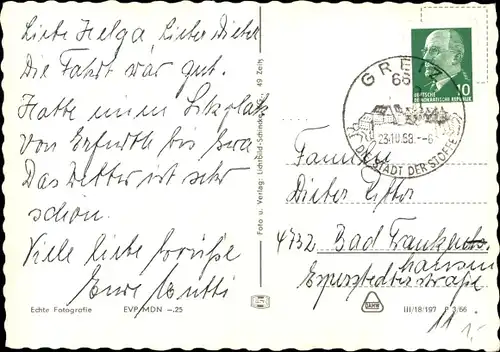 Liebe Helga, Lieber Dieter
Die Fahrt war gut.
Hatte einen Sitzplatz
von Erfurth bis
Das Wetter ist sehr
schön.
Viele liebe Grüsse
Eure Mutti
Foto u. Verlag: Lichtbild-Schincke 49 Zeitz
GREIZ
66
23.10.68.-8
DIE STADT DER STOFFE
DEUTSCHE
DEMOKRATISCHE REPUBLIK
10
Familie
Dieter
4732 Bad Frankenhausen
Esperstedterstraße
11
Echte Fotografie EVP MDN -.25
DAMW
III/18/197 P 3/66
1,-